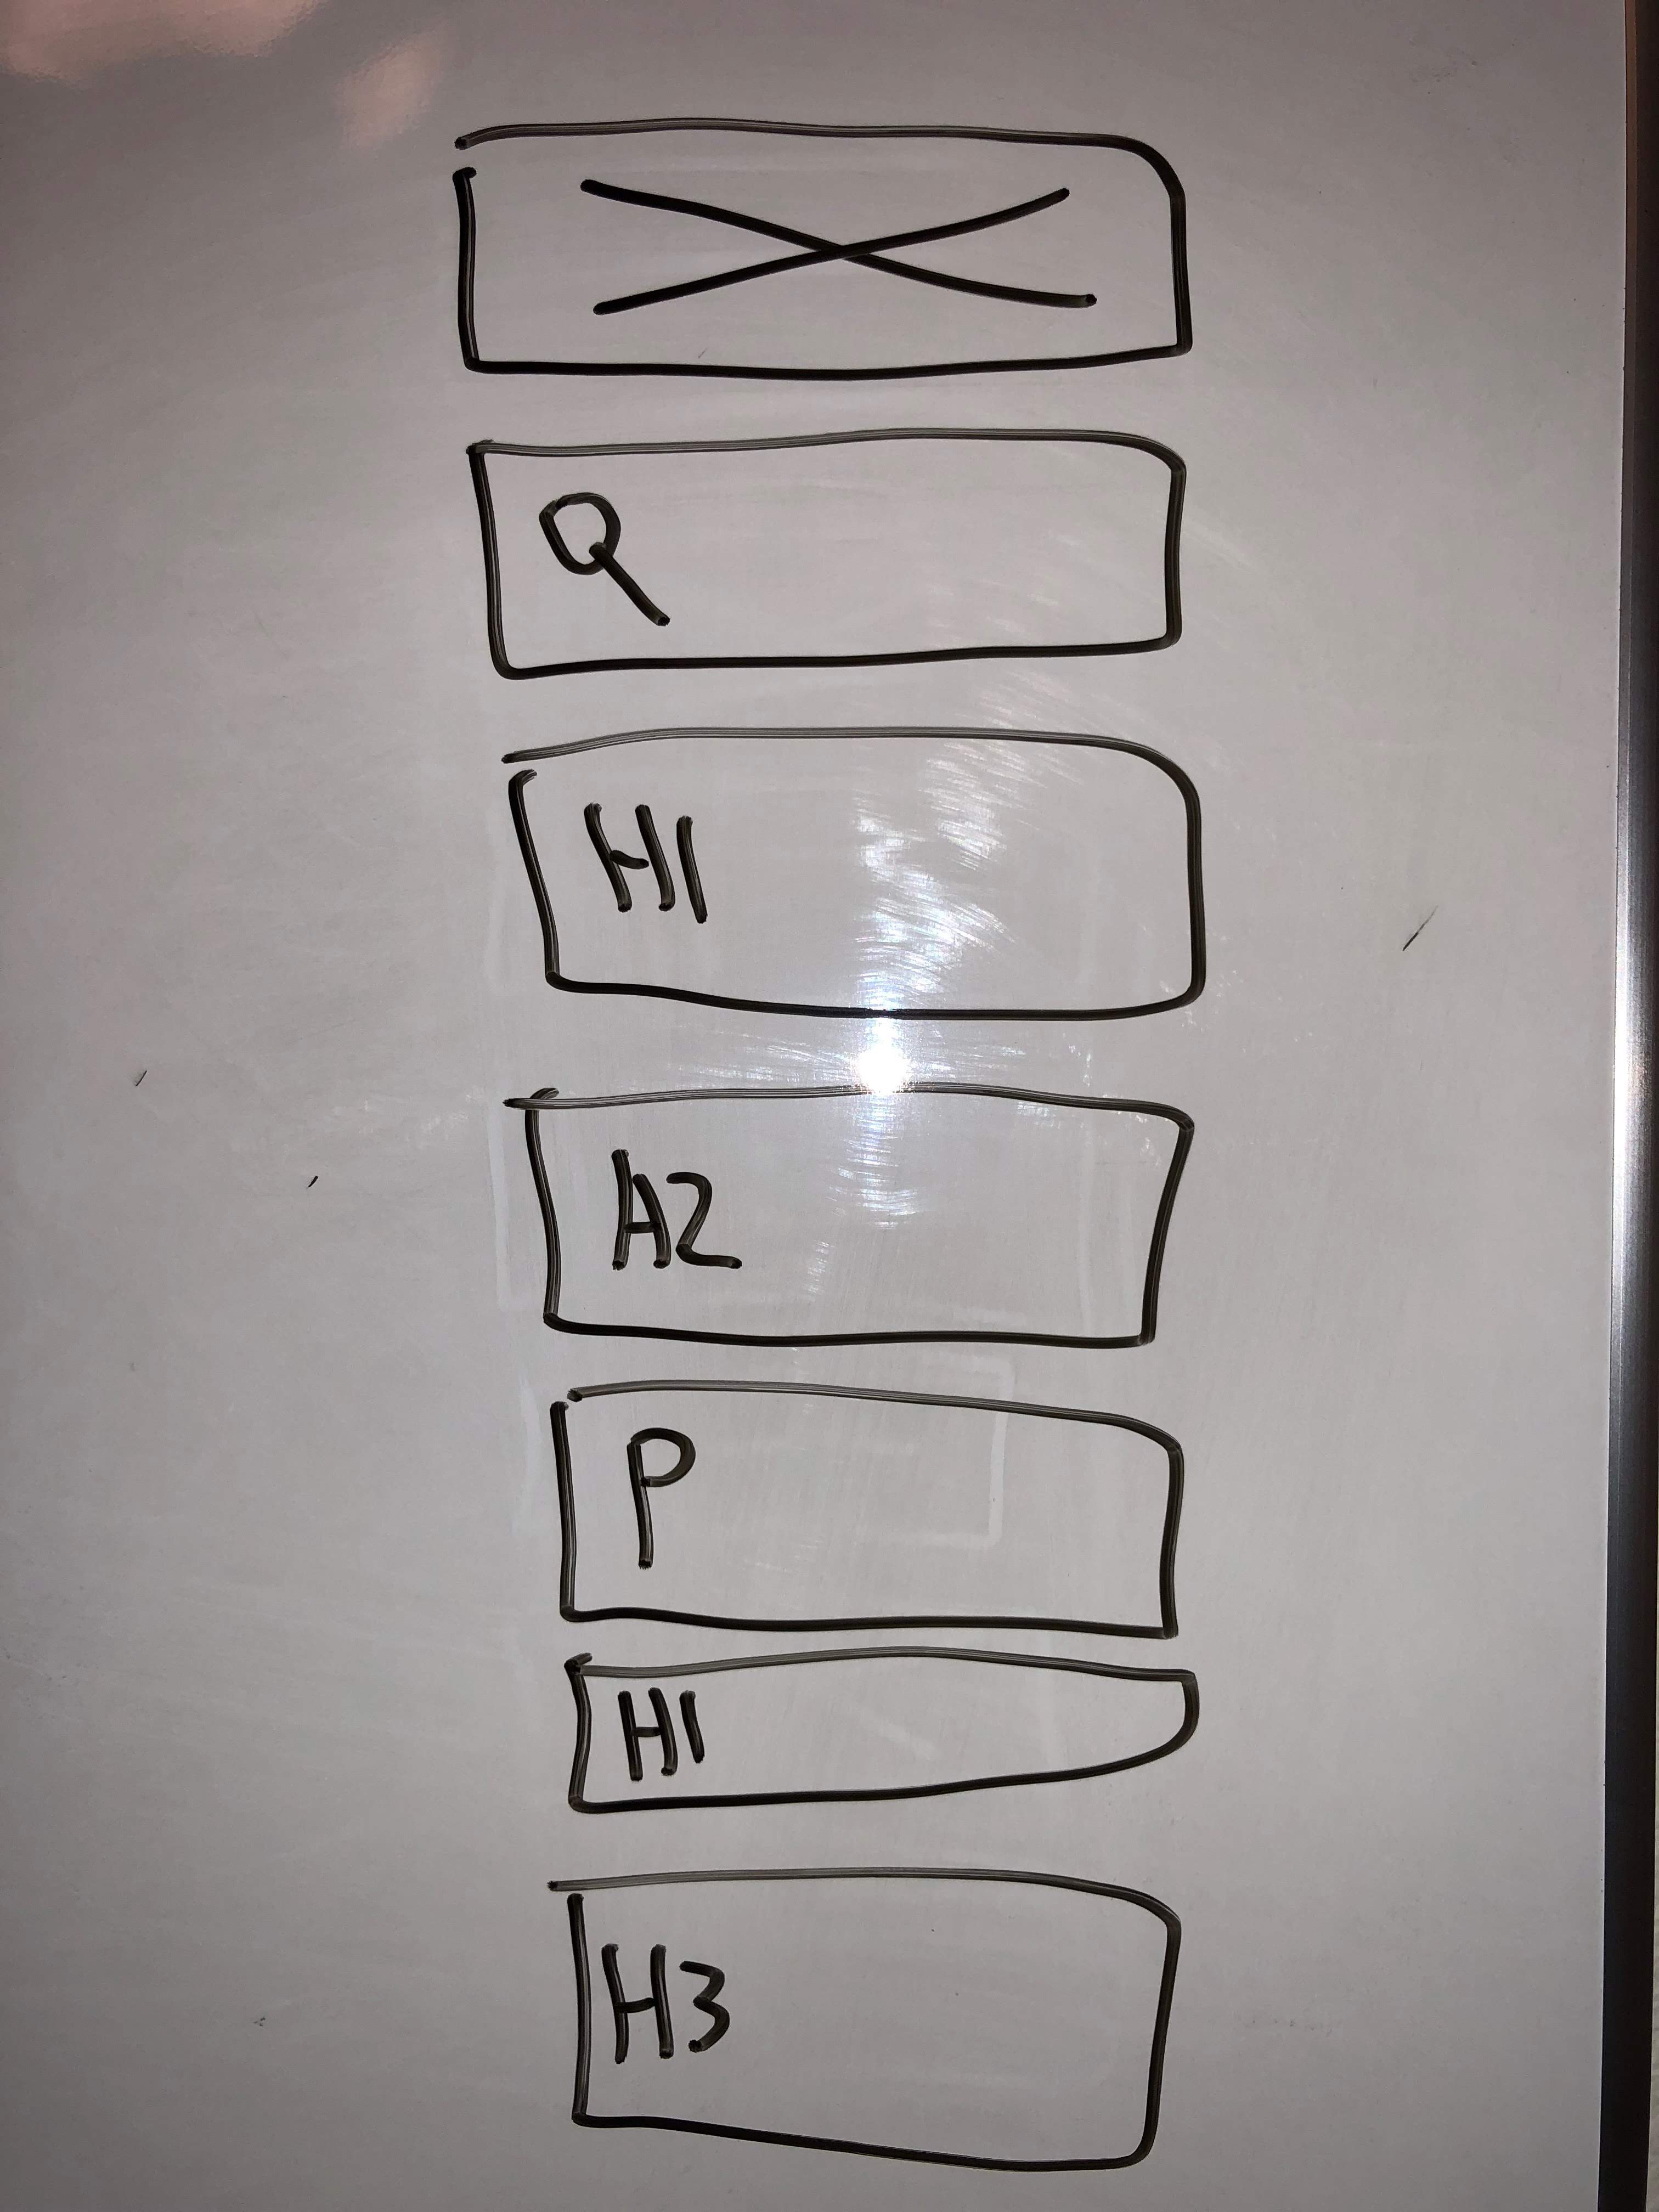 Q
H1
A2
P
H1
H3